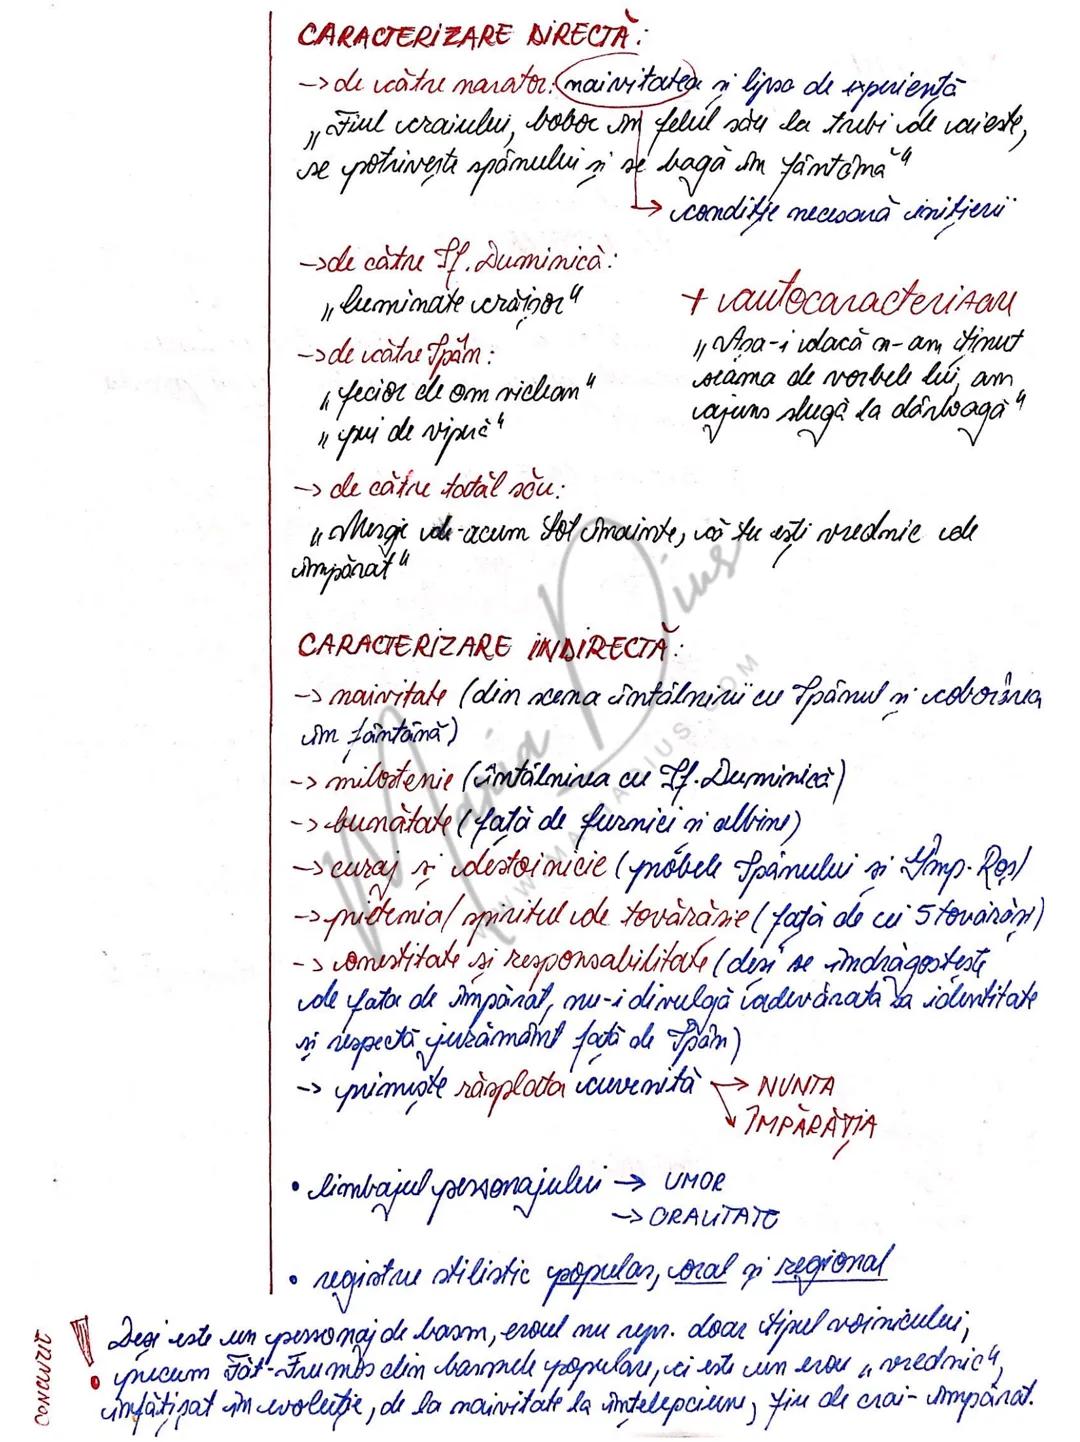 CARACTERIZARE DIRECTĂ:
-> de către narator: naivitatea și lipsa de experiență
„Fiul craiului, boboc în felul său la trebi de aieste,
se potrivește spânului și se bagă în fântână"
-> condiție necesară inițierii
-> de către Sf. Duminică:
„luminate crăișor"
+ autocaracterizare
-> de către Spân:
„Așa-i dacă n-am ținut
„fecior de om viclean"
seama de vorbele lui, am
„pui de viperă"
ajuns slugă la dârloagă"
-> de către tatăl său:
„Mergi de-acum tot înainte, că tu ești vrednic de
împărat"
CARACTERIZARE INDIRECTĂ:
-> naivitate (din scena întâlnirii cu Spânul și coborârea
în fântână)
-> milostenie (întâlnirea cu Sf. Duminică)
-> bunătate (față de furnici și albine)
-> curaj și destoinicie (probele Spânului și Împ. Roș)
-> prietenia/ spiritul de tovărășie (față de cei 5 tovarăși)
-> onestitate și responsabilitate (deși se îndrăgostește
de fata de împărat, nu-i divulgă adevărata sa identitate
și respectă jurământ față de Spân)
-> primește răsplata cuvenită -> NUNTA
-> ÎMPĂRĂȚIA
• limbajul personajului -> UMOR
-> ORALITATE
• registre stilistic popular, oral și regional
CONCLUZIE
! Deși este un personaj de basm, eroul nu repr. doar tipul voinicului,
precum Făt-Frumos din basmele populare, ci este un erou „vrednic",
înfățișat în evoluție, de la naivitate la înțelepciune, fiu de crai-împărat.
Maria Dius
WWW.MARIADIUS.COM